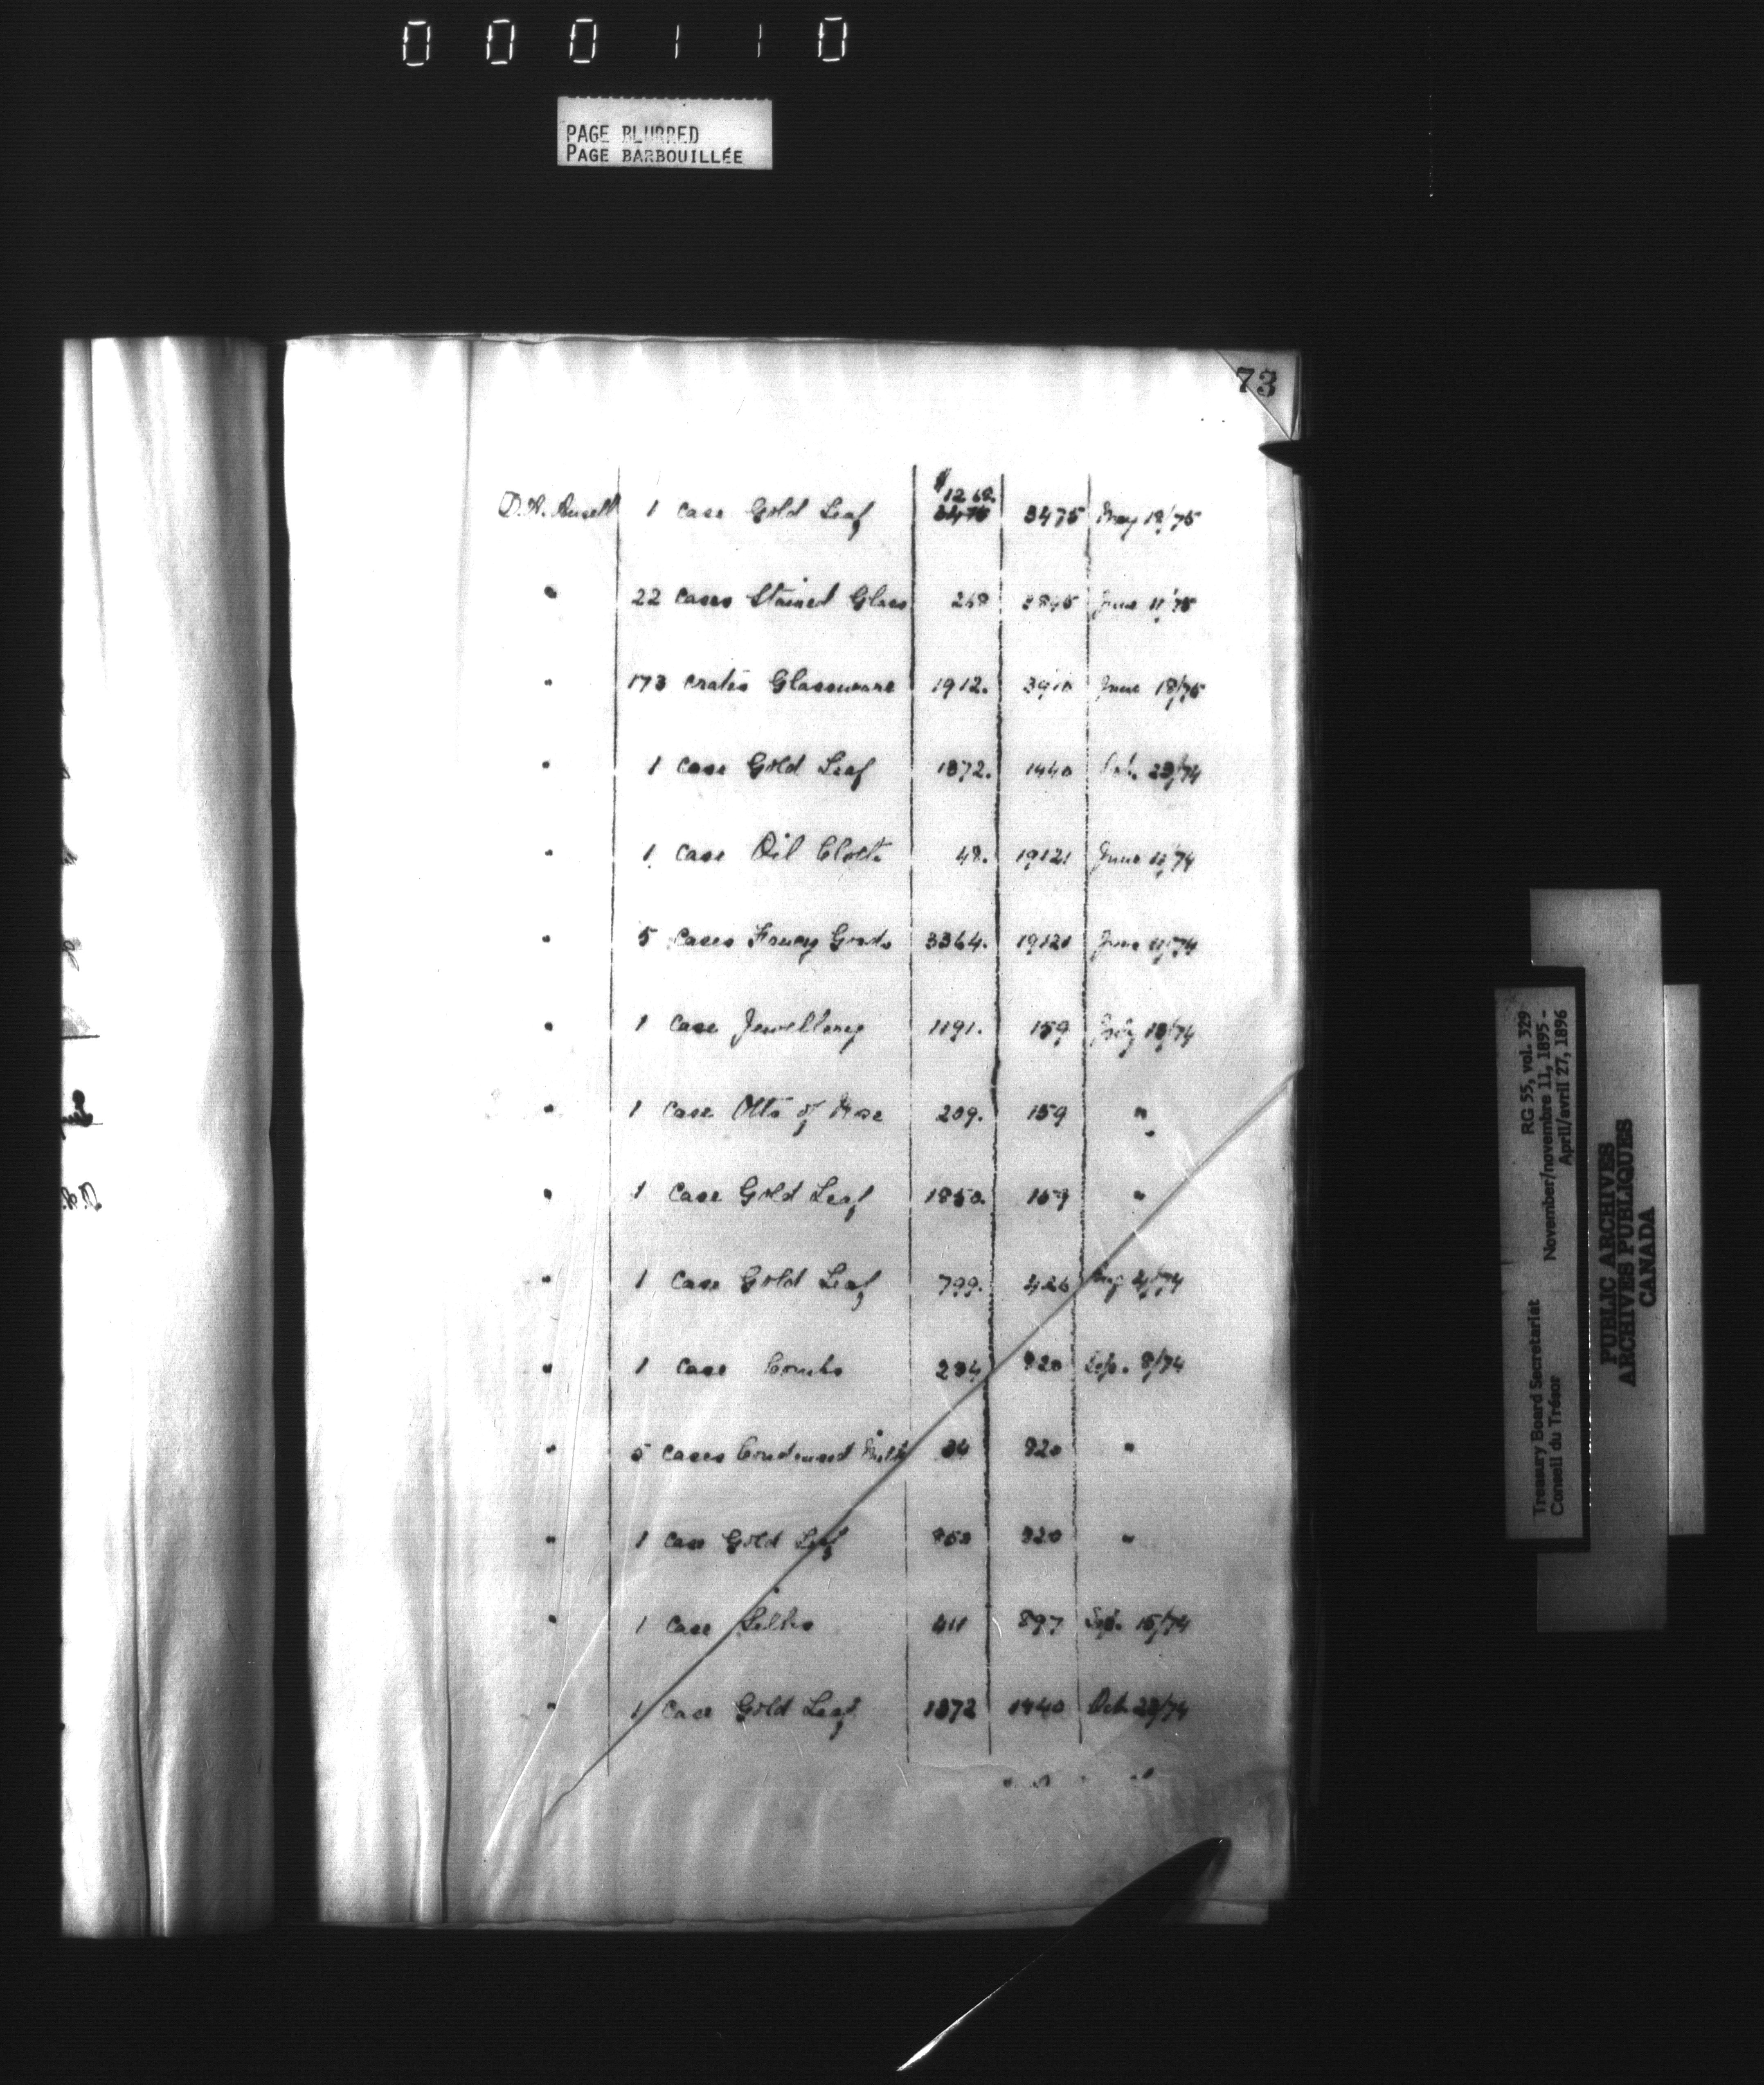 000110
PAGE BLURRED
PAGE BARBOUILLÉE
73
D.A. Ansell 1 Case Gold Leaf $1268. 3475 3475 May 18/75
" 22 Cases Stained Glass 268 3845 June 11/75
" 173 Crates Glassware 1912. 3910 June 18/75
" 1 Case Gold Leaf 1372. 1440 Oct. 23/74
" 1 Case Oil Cloth 48. 19121 June 11/74
" 5 Cases Fancy Goods 3364. 19121 June 11/74
" 1 Case Jewellery 1191. 159 July 18/74
" 1 Case Otto of Rose 209. 159 "
" 1 Case Gold Leaf 1850. 159 "
" 1 Case Gold Leaf 799. 426 Aug 4/74
" 1 Case Combs 234 820 Sep. 8/74
" 5 Cases Condensed Milk 34 820 "
" 1 Case Gold Leaf 850 820 "
" 1 Case Silks 411 897 Sep. 15/74
" 1 Case Gold Leaf 1372 1440 Oct 23/74
Treasury Board Secretariat RG 55, vol. 329
Conseil du Trésor November/novembre 11, 1895 -
April/avril 27, 1896
PUBLIC ARCHIVES
ARCHIVES PUBLIQUES
CANADA